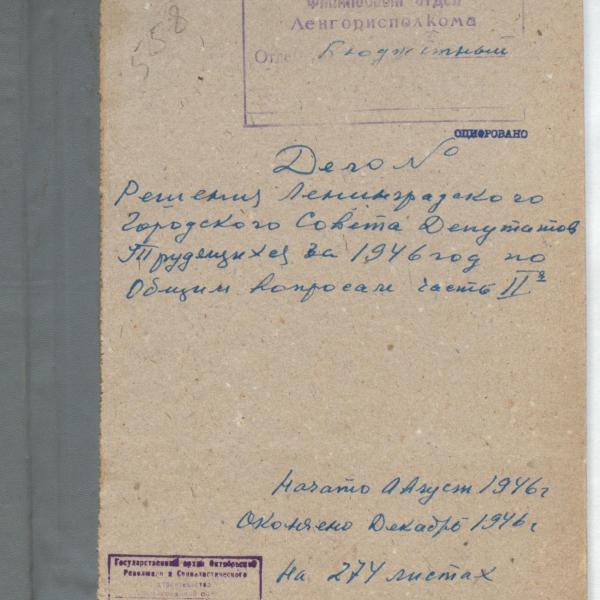 558
Финансовый отдел
Ленгорисполкома
Отдел Бюджетный
ОЦИФРОВАНО
Дело №
Решения Ленинградского
Городского Совета Депутатов
Трудящихся за 1946 год по
Общим вопросам часть IIя
Начато Август 1946 г
Окончено Декабрь 1946 г
На 274 листах
Государственный архив Октябрьской
Революции и Социалистического
строительства